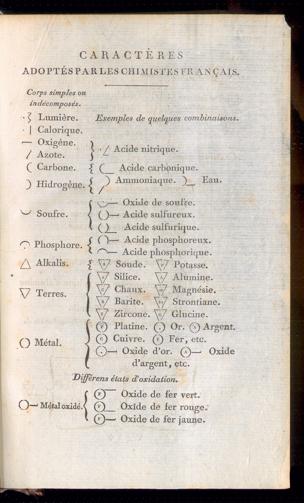 CARACTÈRES
ADOPTÉS PAR LES CHIMISTES FRANÇAIS.
Corps simples ou
indécomposés.
Lumière. Exemples de quelques combinaisons.
Calorique.
Oxigéne.
Acide nitrique.
Azote.
Carbone. Acide carbonique.
Hidrogène. Ammoniaque. Eau.
Oxide de soufre.
Soufre. Acide sulfureux.
Acide sulfurique.
Phosphore. Acide phosphoreux.
Acide phosphorique.
Alkalis. Soude. Potasse.
Silice. Alumine.
Terres. Chaux. Magnésie.
Barite. Strontiane.
Zircone. Glucine.
Platine. Or. Argent.
Métal. Cuivre. Fer, etc.
Oxide d'or. Oxide
d'argent, etc.
Différens états d'oxidation.
Oxide de fer vert.
Métal oxidé. Oxide de fer rouge.
Oxide de fer jaune.